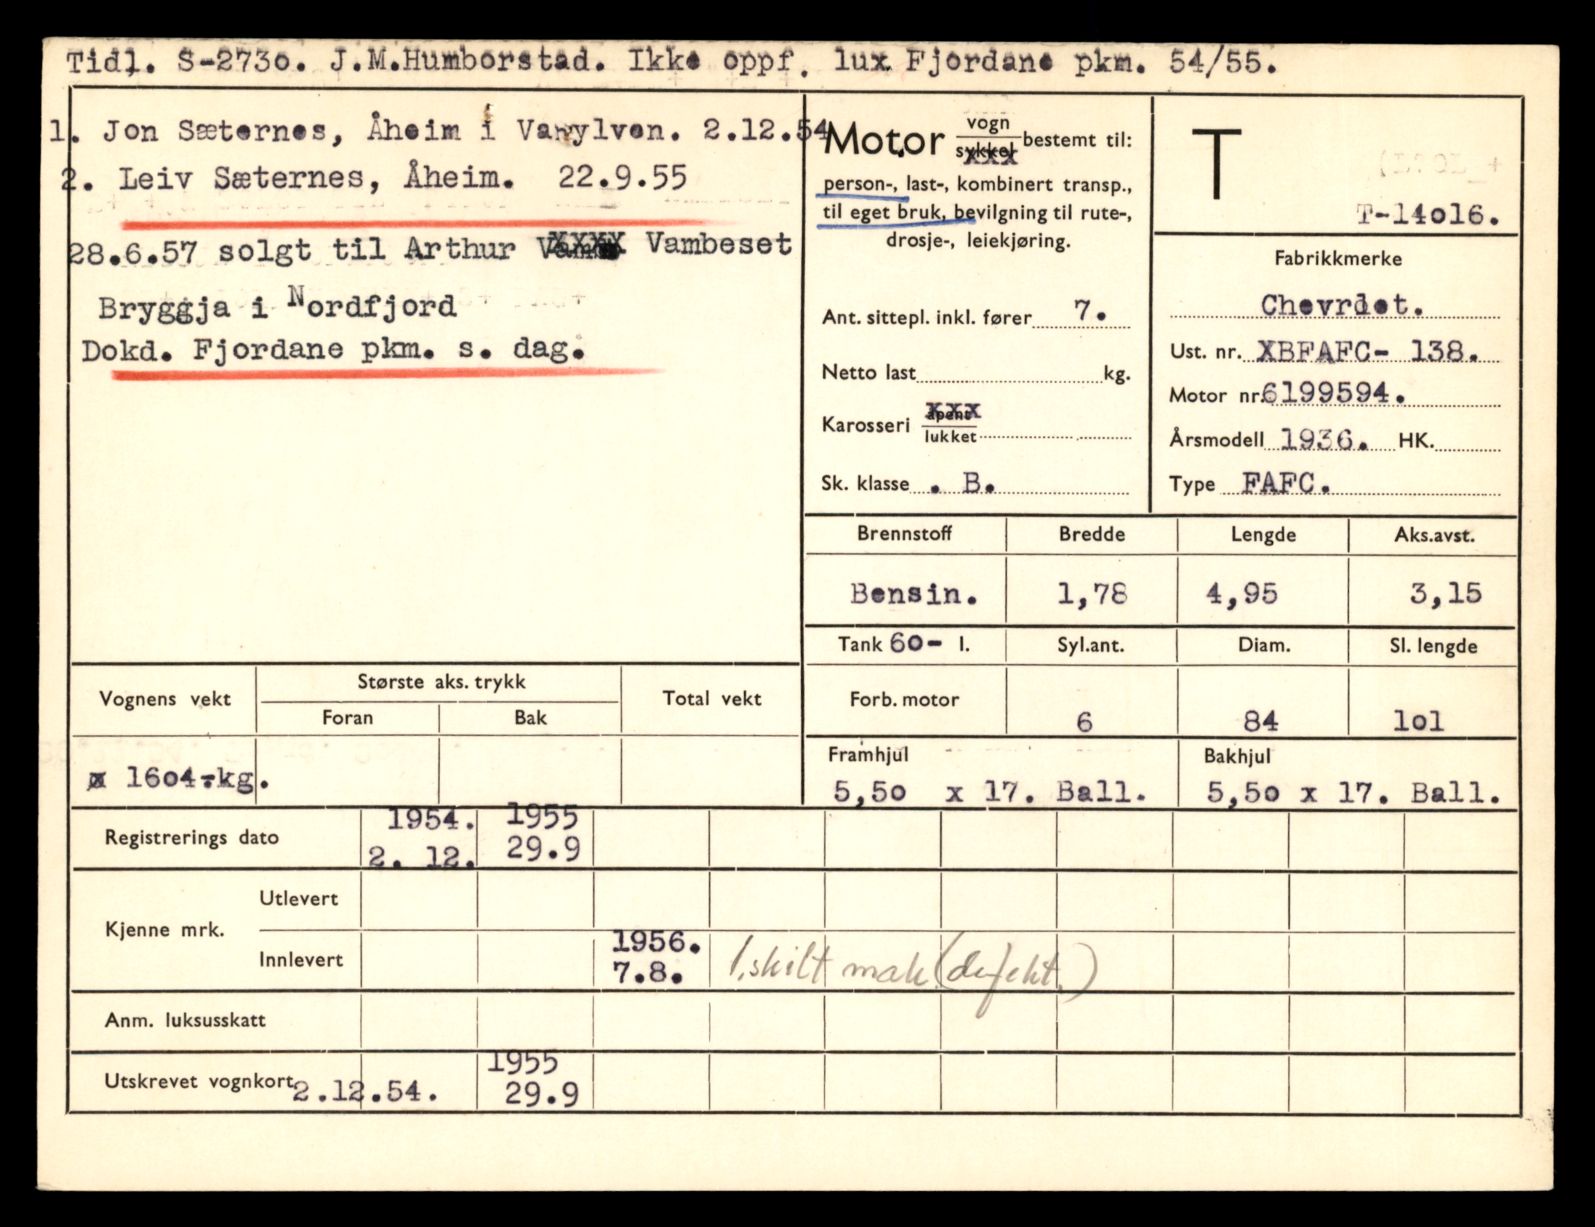 Tidl. S-2730. J.M.Humborstad. Ikke oppf. lux Fjordane pkm. 54/55.
1. Jon Sæternes, Åheim i Vanylven. 2.12.54
2. Leiv Sæternes, Åheim. 22.9.55
28.6.57 solgt til Arthur Vambeset
Bryggja i Nordfjord
Dokd. Fjordane pkm. s. dag.
Motor vogn sykkel xxx bestemt til:
person-, last-, kombinert transp.,
til eget bruk, bevilgning til rute-,
drosje-, leiekjøring.
Ant. sittepl. inkl. fører 7.
Netto last kg.
Karosseri xxx åpent
lukket
Sk. klasse . B.
T
T-14016.
Fabrikkmerke
Chevrolet.
Ust. nr. XBFAFC- 138.
Motor nr. 6199594.
Årsmodell 1936. HK.
Type FAFC.
Brennstoff Bredde Lengde Aks.avst.
Bensin. 1,78 4,95 3,15
Tank 60- l. Syl.ant. Diam. Sl. lengde
Forb. motor 6 84 101
Framhjul Bakhjul
5,50 x 17. Ball. 5,50 x 17. Ball.
Vognens vekt Største aks. trykk Total vekt
Foran Bak
x 1604.-kg.
Registrerings dato 1954. 1955
2. 12. 29.9
Kjenne mrk. Utlevert
Innlevert 1956.
7.8. 1. skilt mak. (defekt.)
Anm. luksusskatt
Utskrevet vognkort 2.12.54. 1955
29.9